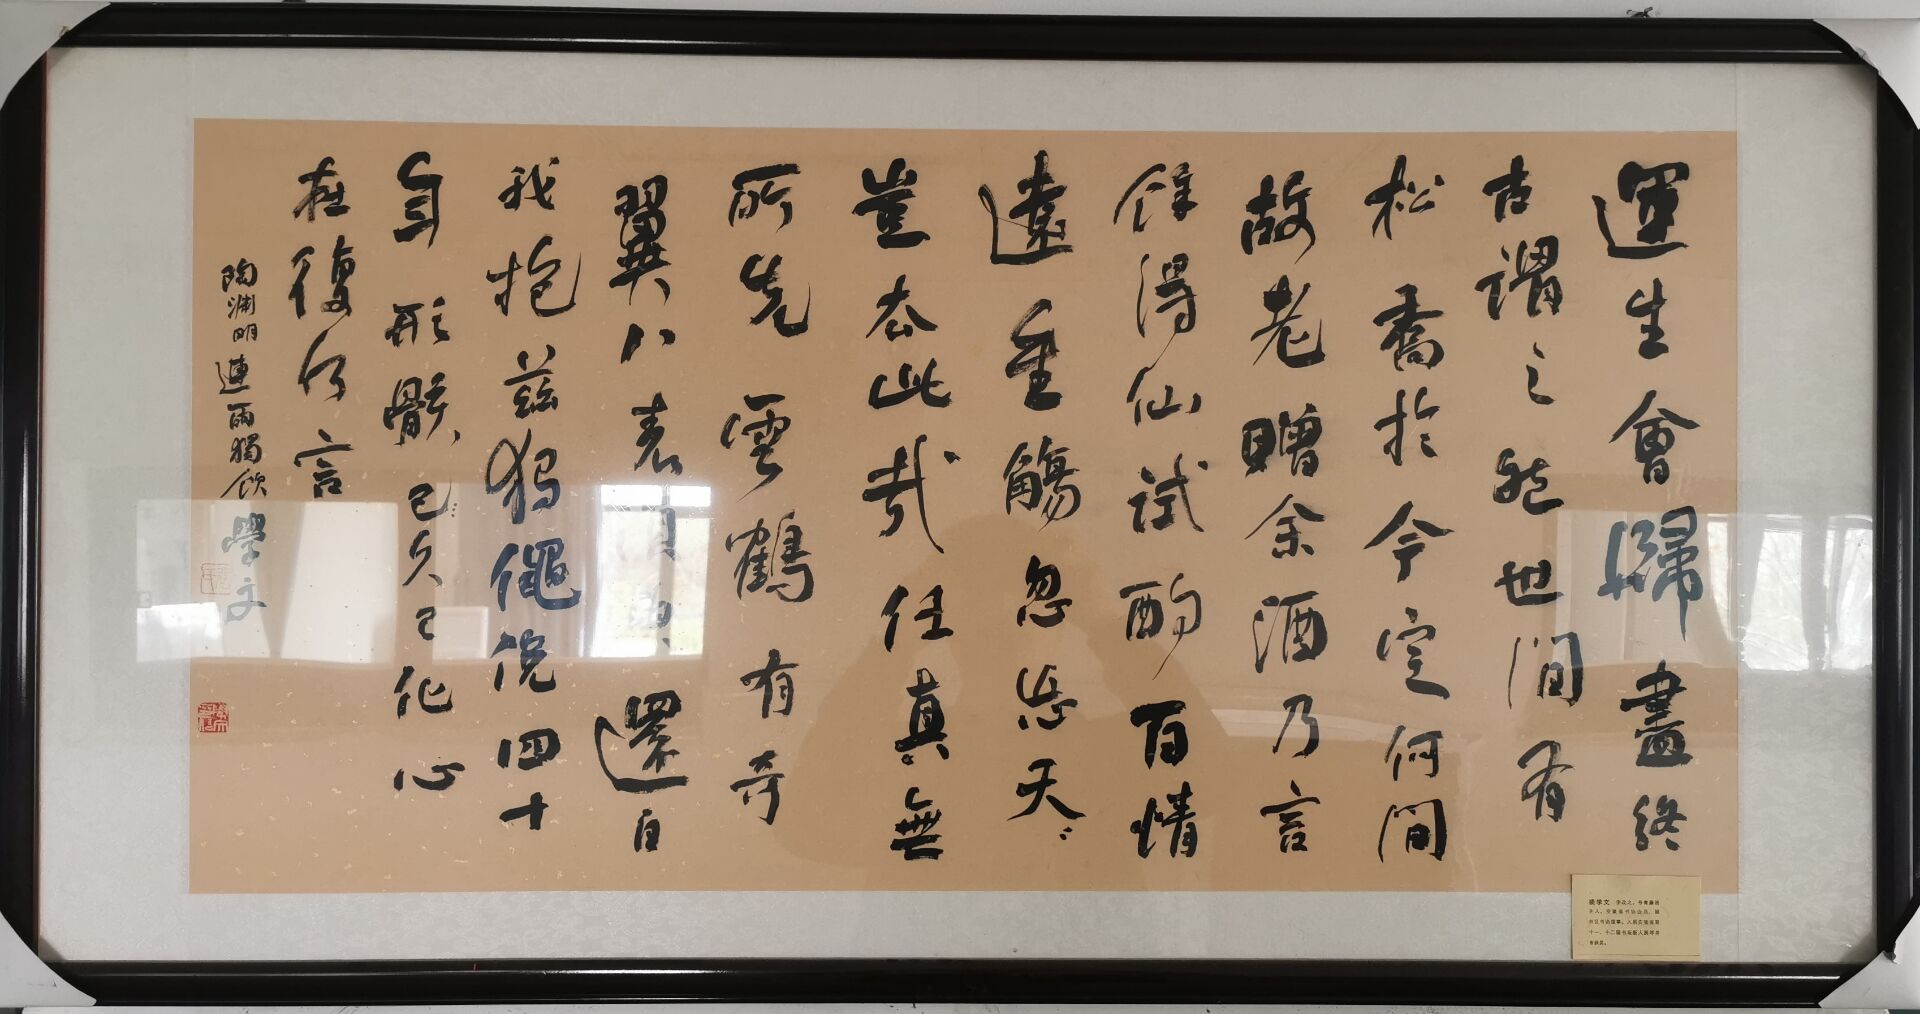 運生會歸盡終
古謂之然世間有
松喬於今定何間
故老贈余酒乃言
飲得仙試酌百情
遠重觴忽忘天
豈去此哉任真無
所先雲鶴有奇
翼八表須臾還自
我抱茲獨僶俛四十
年形骸已久已化心
在復何言
陶渊明連雨獨飲 學文